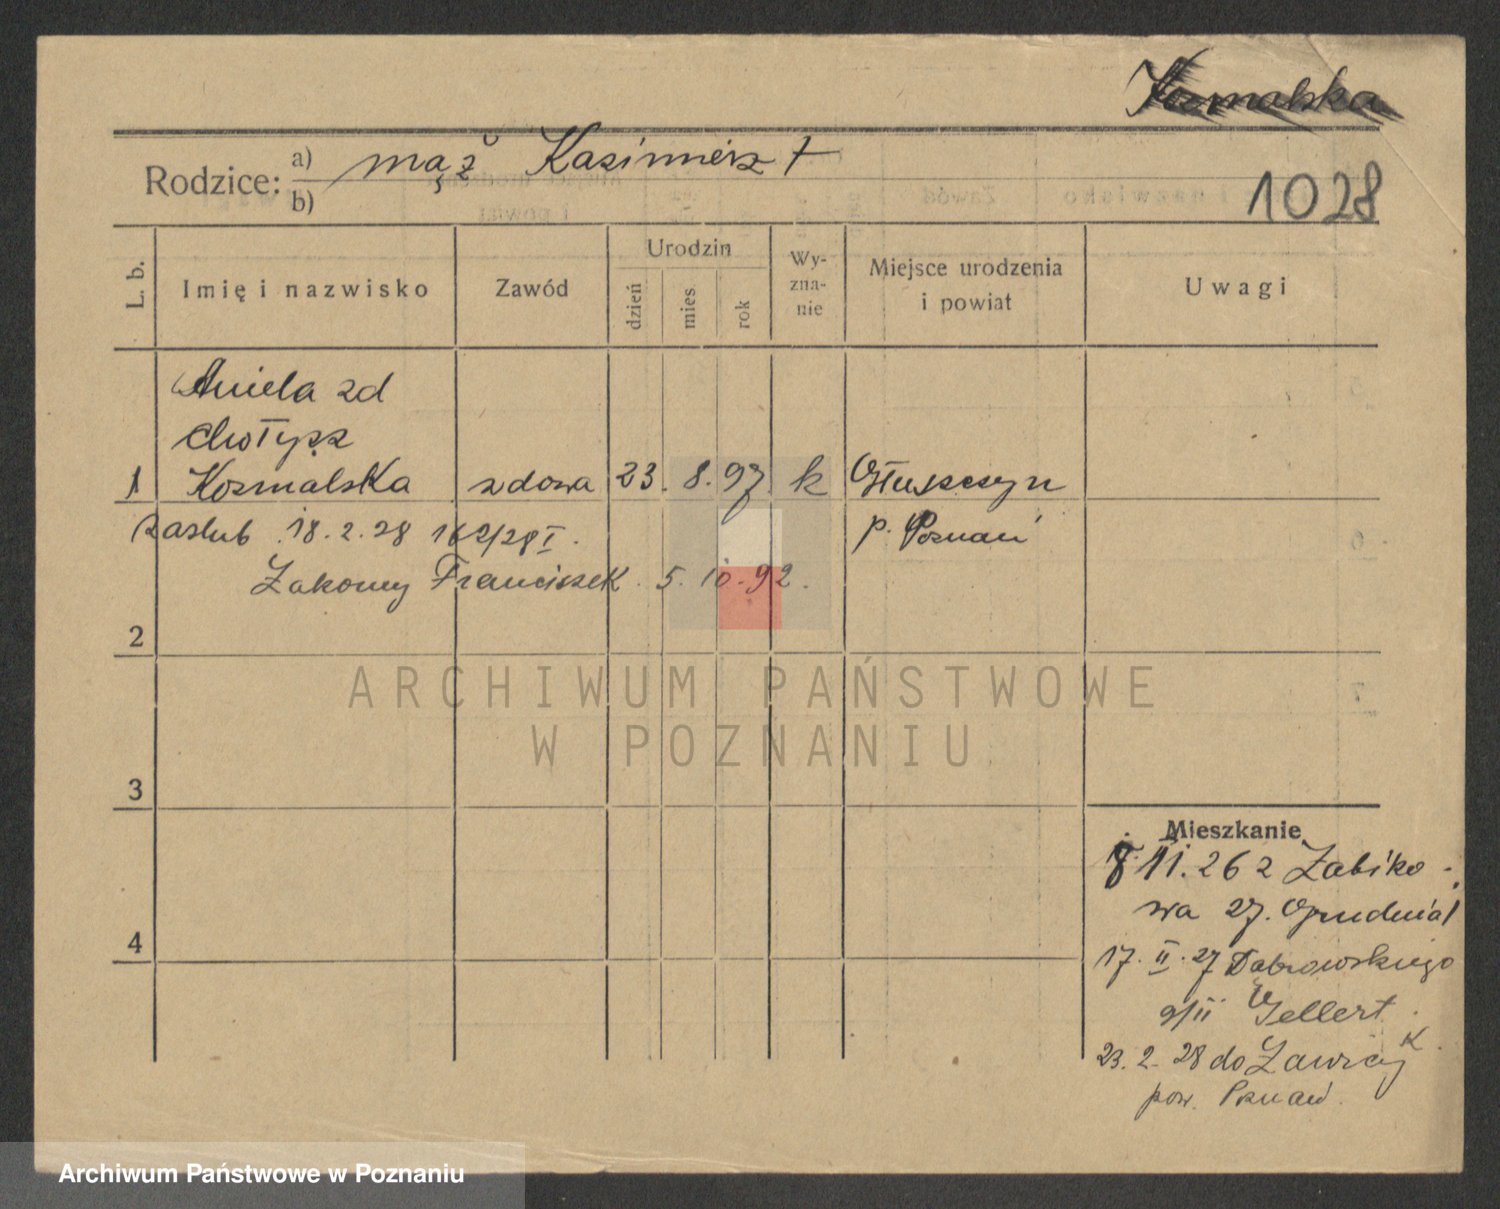 Kozmalska
Rodzice: a) mąż Kazimierz †
b)
1028
L. b.
Imię i nazwisko
Zawód
Urodzin
dzień
mies
rok
Wy-
zna-
nie
Miejsce urodzenia
i powiat
Uwagi
Aniela zd
1 Kozmalska wdowa 23. 8. 97 k Głuszczyn
zaślub 18. 2. 28 162/28 I. p. Poznań
Żakowy Franciszek. 5. 10. 92.
2
3
4
Mieszkanie
8 11. 26 z Żabiko-
wa 27. Grudnia 1
17. II. 27 Dąbrowskiego
9/II Gellert.
23. 2. 28 do
pow. Poznań.
ARCHIWUM PAŃSTWOWE
W POZNANIU
Archiwum Państwowe w Poznaniu